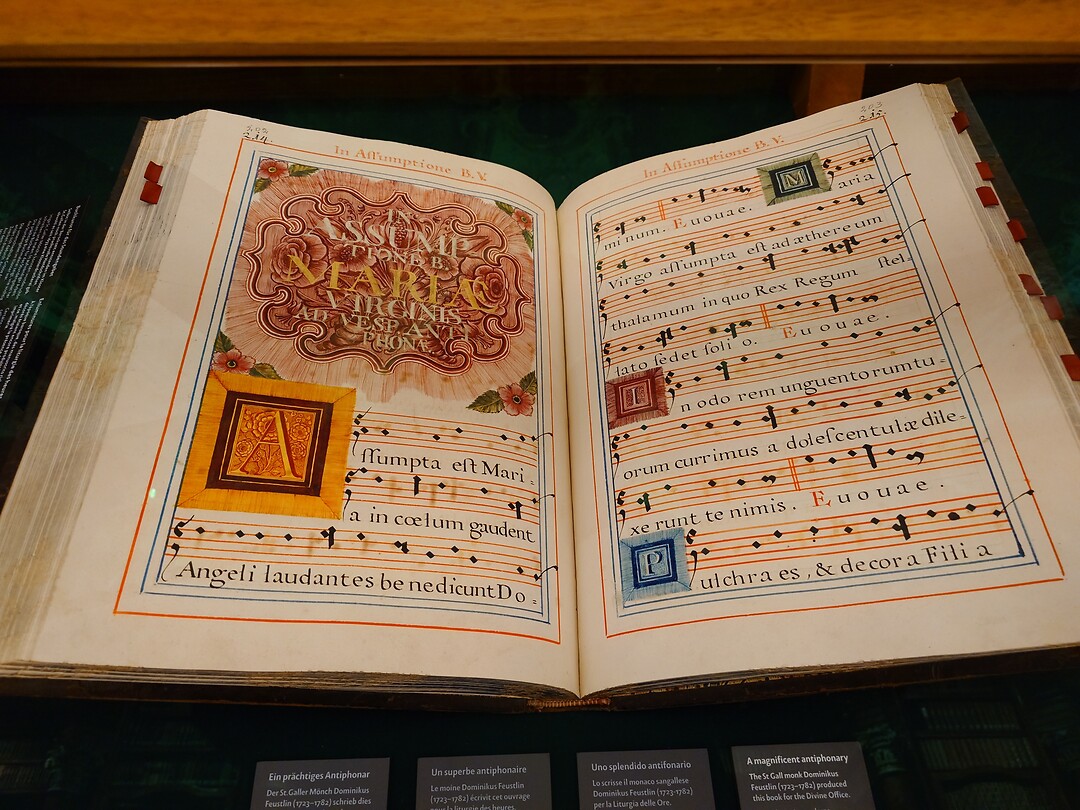 214.
In Aſſumptione B.V.
IN
ASSUMP
TIONE B.
MARIA
VIRGINIS
AD VESP. ANTI
PHONA
A
ſſumpta eſt Mari-
a in cœlum gaudent
Angeli laudantes benedicunt Do-
In Aſſumptione B.V.
M
aria
minum. Euouae.
Virgo aſſumpta eſt ad æthereum
thalamum in quo Rex Regum ſtel-
lato ſedet ſolio. Euouae.
I
n odorem unguentorum tu-
orum currimus adoleſcentulæ dile-
xerunt te nimis. Euouae.
P
ulchra es, & decora Filia
Ein prächtiges Antiphonar
Der St. Galler Mönch Dominikus
Feustlin (1723–1782) schrieb dies
Un superbe antiphonaire
Le moine Dominikus Feustlin
(1723–1782) écrivit cet ouvrage
pour la liturgie des heures.
Uno splendido antifonario
Lo scrisse il monaco sangallese
Dominikus Feustlin (1723-1782)
per la Liturgia delle Ore.
A magnificent antiphonary
The St Gall monk Dominikus
Feustlin (1723–1782) produced
this book for the Divine Office.